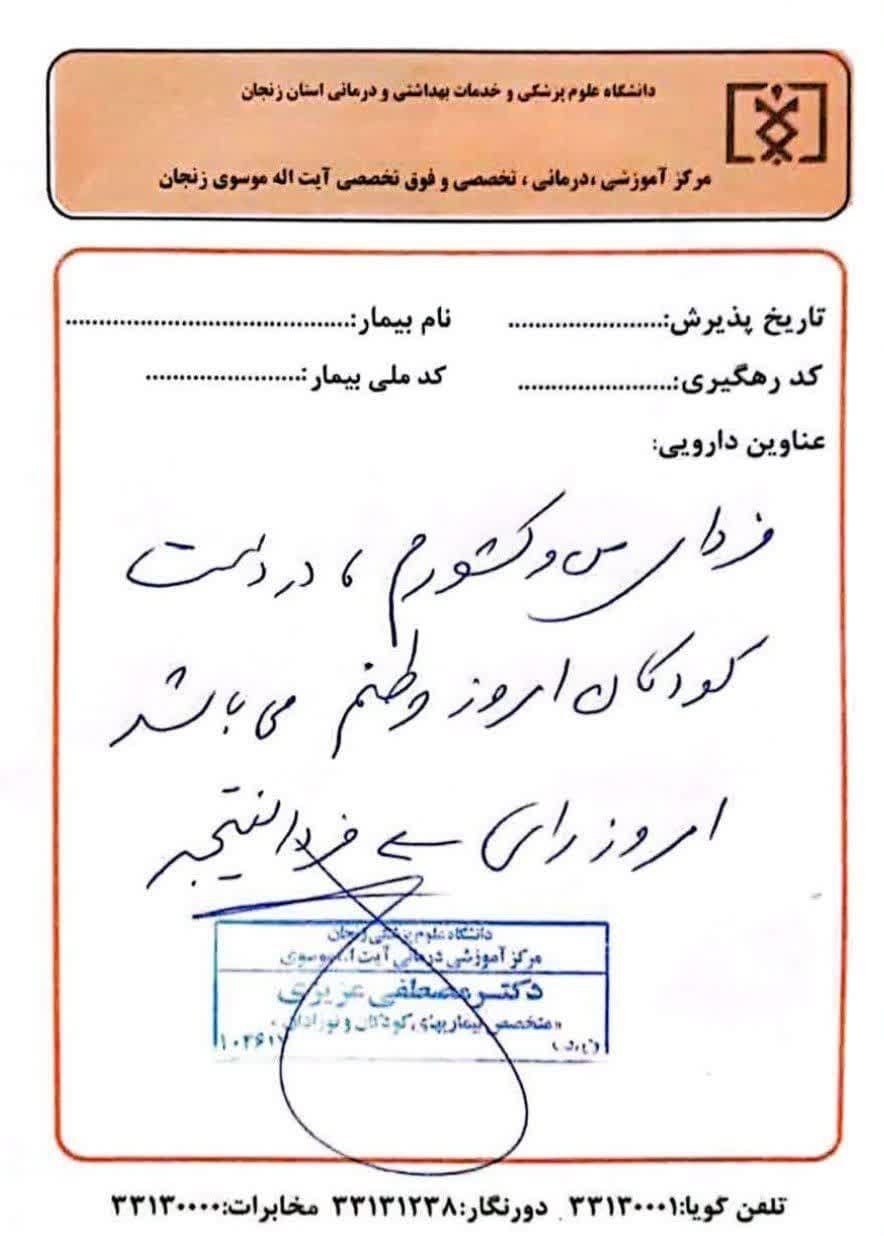 دانشگاه علوم پزشکی و خدمات بهداشتی و درمانی استان زنجان
مرکز آموزشی ،درمانی ، تخصصی و فوق تخصصی آیت اله موسوی زنجان
تاریخ پذیرش:........................ نام بیمار:............................................
کد رهگیری:........................ کد ملی بیمار:........................
عناوین دارویی:
فردای من و کشورم ، در دست
کودکان امروز وطنم می باشد
امروز رای فردا نتیجه
دانشگاه علوم پزشکی زنجان
مرکز آموزشی درمانی آیت ا... موسوی
دکتر مصطفی عزیزی
«متخصص بیماریهای کودکان و نوزادان»
تلفن گویا:۳۳۱۳۰۰۰۱ دورنگار:۳۳۱۳۱۲۳۸ مخابرات:۳۳۱۳۰۰۰۰